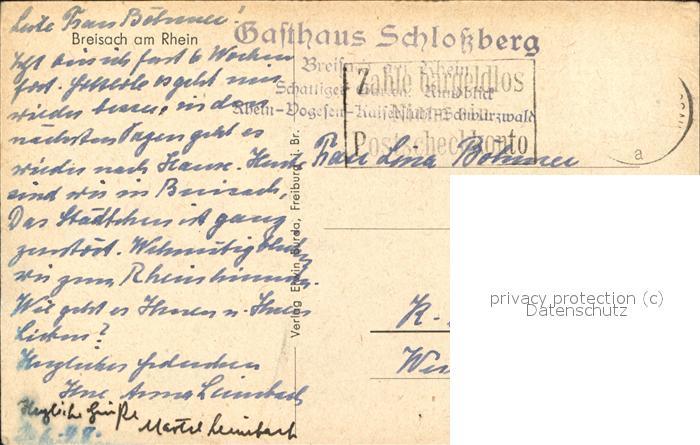 Liebe Frau Böhmer!
Breisach am Rhein
Jetzt bin ich fast 6 Wochen
fort. es geht nun
wieder besser, in den
nächsten Tagen geht es
wieder nach Hause. Heute
sind wir in Breisach,
Das Städtchen ist ganz
zerstört. Wehmütig blicken
wir zum Rhein hinunter.
Wie geht es Ihnen u. Ihren
Lieben?
Herzliches Gedenken
Ihre Anna Leimbach
Herzliche Grüße
Martel Leimbach
Verlag Erwin Burda, Freiburg i. Br.
Gasthaus Schloßberg
Breisach am Rhein
Schattiger Garten. Rundblick
Rhein-Vogesen-Kaiserstuhl-Schwarzwald
Zahle bargeldlos
Postscheckkonto
a
Frau Lina Böhmer
K.
privacy protection (c)
Datenschutz